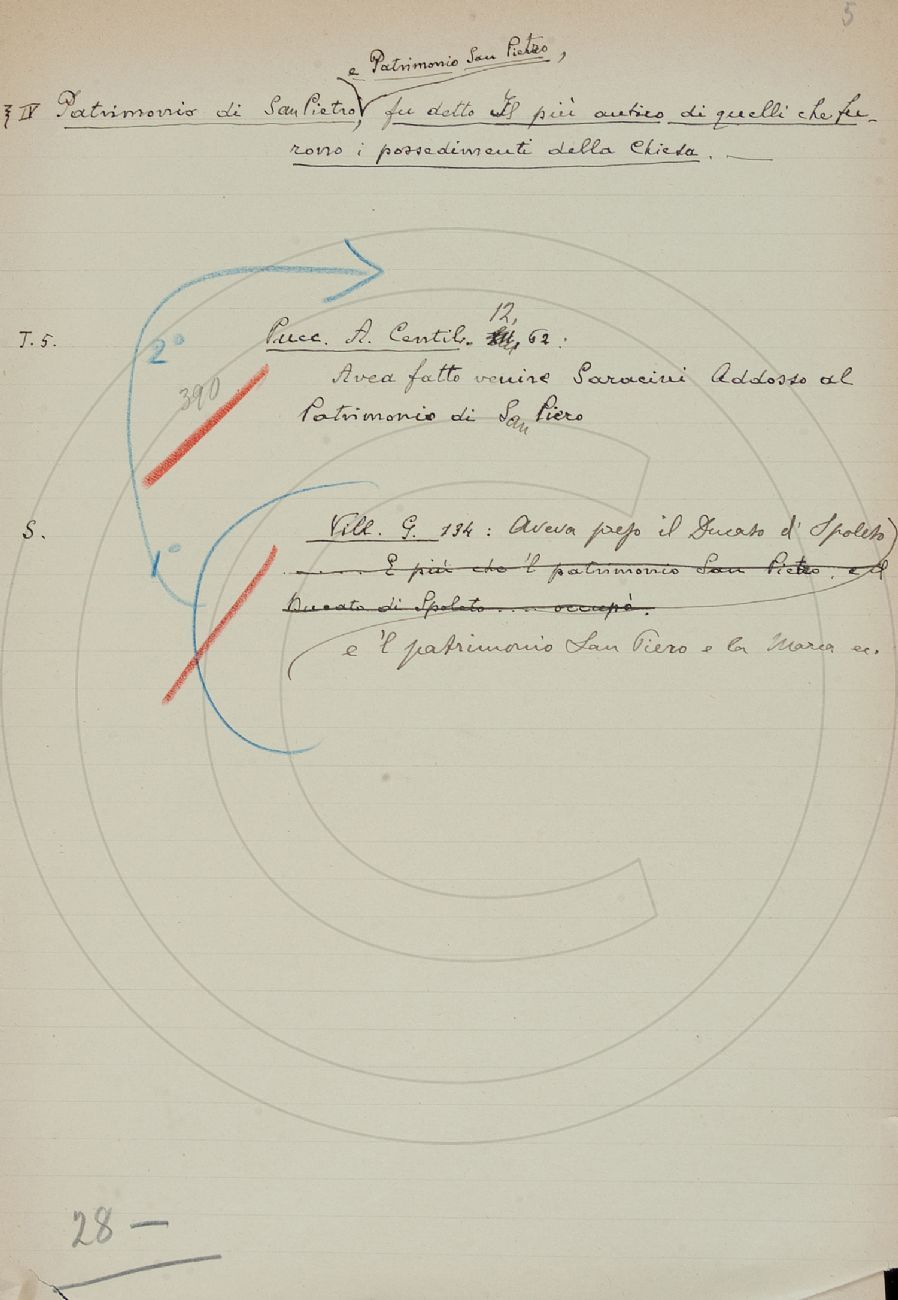 5
e Patrimonio San Pietro,
§ IV Patrimonio di San Pietro, fu detto Il più antico di quelli che fu-
rono i possedimenti della Chiesa.
T. 5. Pucc. A. Centil. 12, 62:
2°
390
Avea fatto venire Saracini Addosso al
Patrimonio di San Piero
S. Vill. G. 134: Aveva preso il Ducato d' Spoleto
1°
....... E più che 'l patrimonio San Pietro. e il
Ducato di Spoleto .... occupò.
e 'l patrimonio San Piero e la Marca ec.
28 —